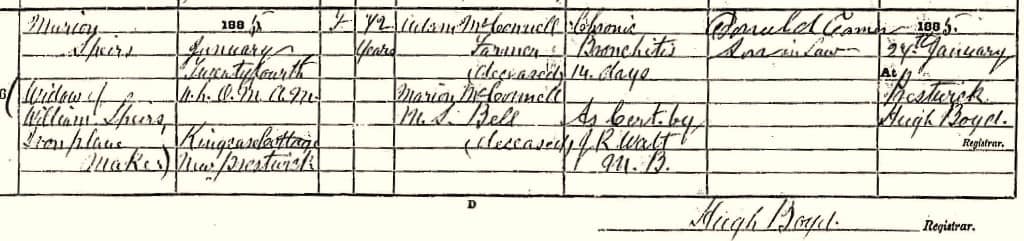 Marion
Speirs
(Widow of
William Speirs,
Ironplane
Maker)
1885,
January
Twentyfourth
0. h. 0. M. A.M.
Kingcase Cottage
New Prestwick
F
72
Years
Adam McConnell
Farmer
(deceased)
Marion McConnell
M. S. Bell
(deceased)
Chronic
Bronchitis
14 days
As Cert. by
J R Watt
M. B.
Donald
Son in Law
1885,
24th January
At
Prestwick
Hugh Boyd.
Registrar.
D
Hugh Boyd.
Registrar.